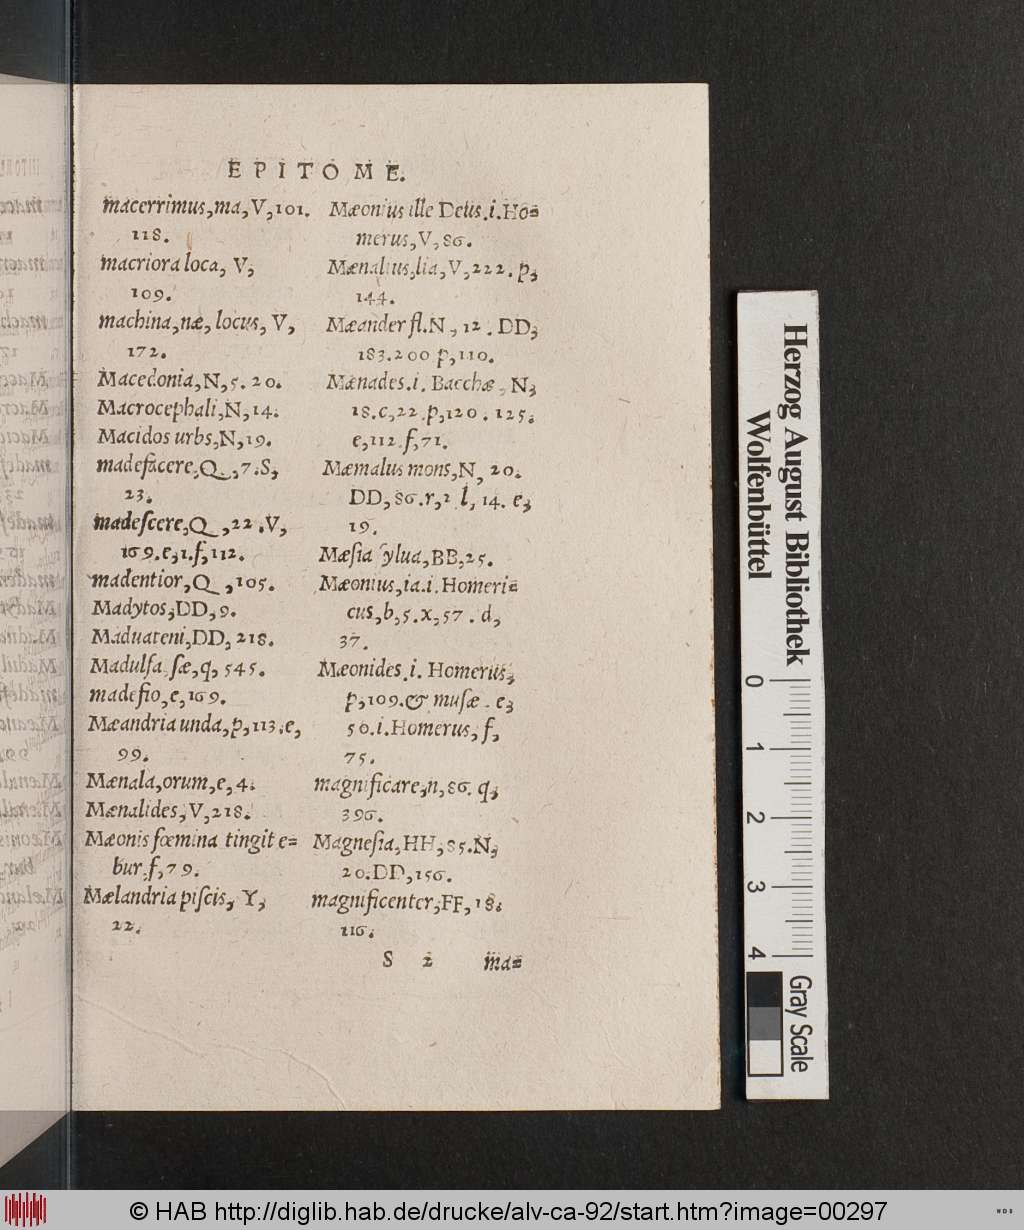 EPITOME.
macerrimus, ma, V, 101.
118.
macriora loca, V,
109.
machina, næ, locus, V,
172.
Macedonia, N, 5. 20.
Macrocephali, N, 14.
Macidos urbs, N, 19.
madefacere, Q, 7. S,
23.
madescere, Q, 22. V,
169. e, 1. f, 112.
madentior, Q, 105.
Madytos, DD, 9.
Maduateni, DD, 218.
Madulsa, sæ, q, 545.
madefio, e, 169.
Mæandria unda, p, 113. e,
99.
Mænala, orum, e, 4.
Mænalides, V, 218.
Mæonis fœmina tingit e=
bur, f, 79.
Mælandria piscis, Y,
22.
Mæonius ille Deus. i. Ho=
merus, V, 86.
Mænalius, lia, V, 222. p,
144.
Mæander fl. N, 12. DD,
183. 200 p, 110.
Mænades. i. Bacchæ, N,
18. c, 22. p, 120. 125.
e, 112. f, 71.
Mæmalus mons, N, 20.
DD, 86. r, 2 l, 14. e,
19.
Mæsia sylua, BB, 25.
Mæonius, ia. i. Homeri=
cus, b, 5. x, 57. d,
37.
Mæonides. i. Homerus,
p, 109. & musæ. e,
50. i. Homerus, f,
75.
magnificare, n, 86. q,
396.
Magnesia, HH, 85. N,
20. DD, 156.
magnificenter, FF, 18.
116.
S 2 ma=
Herzog August Bibliothek
Wolfenbüttel
0 1 2 3 4
Gray Scale
© HAB http://diglib.hab.de/drucke/alv-ca-92/start.htm?image=00297